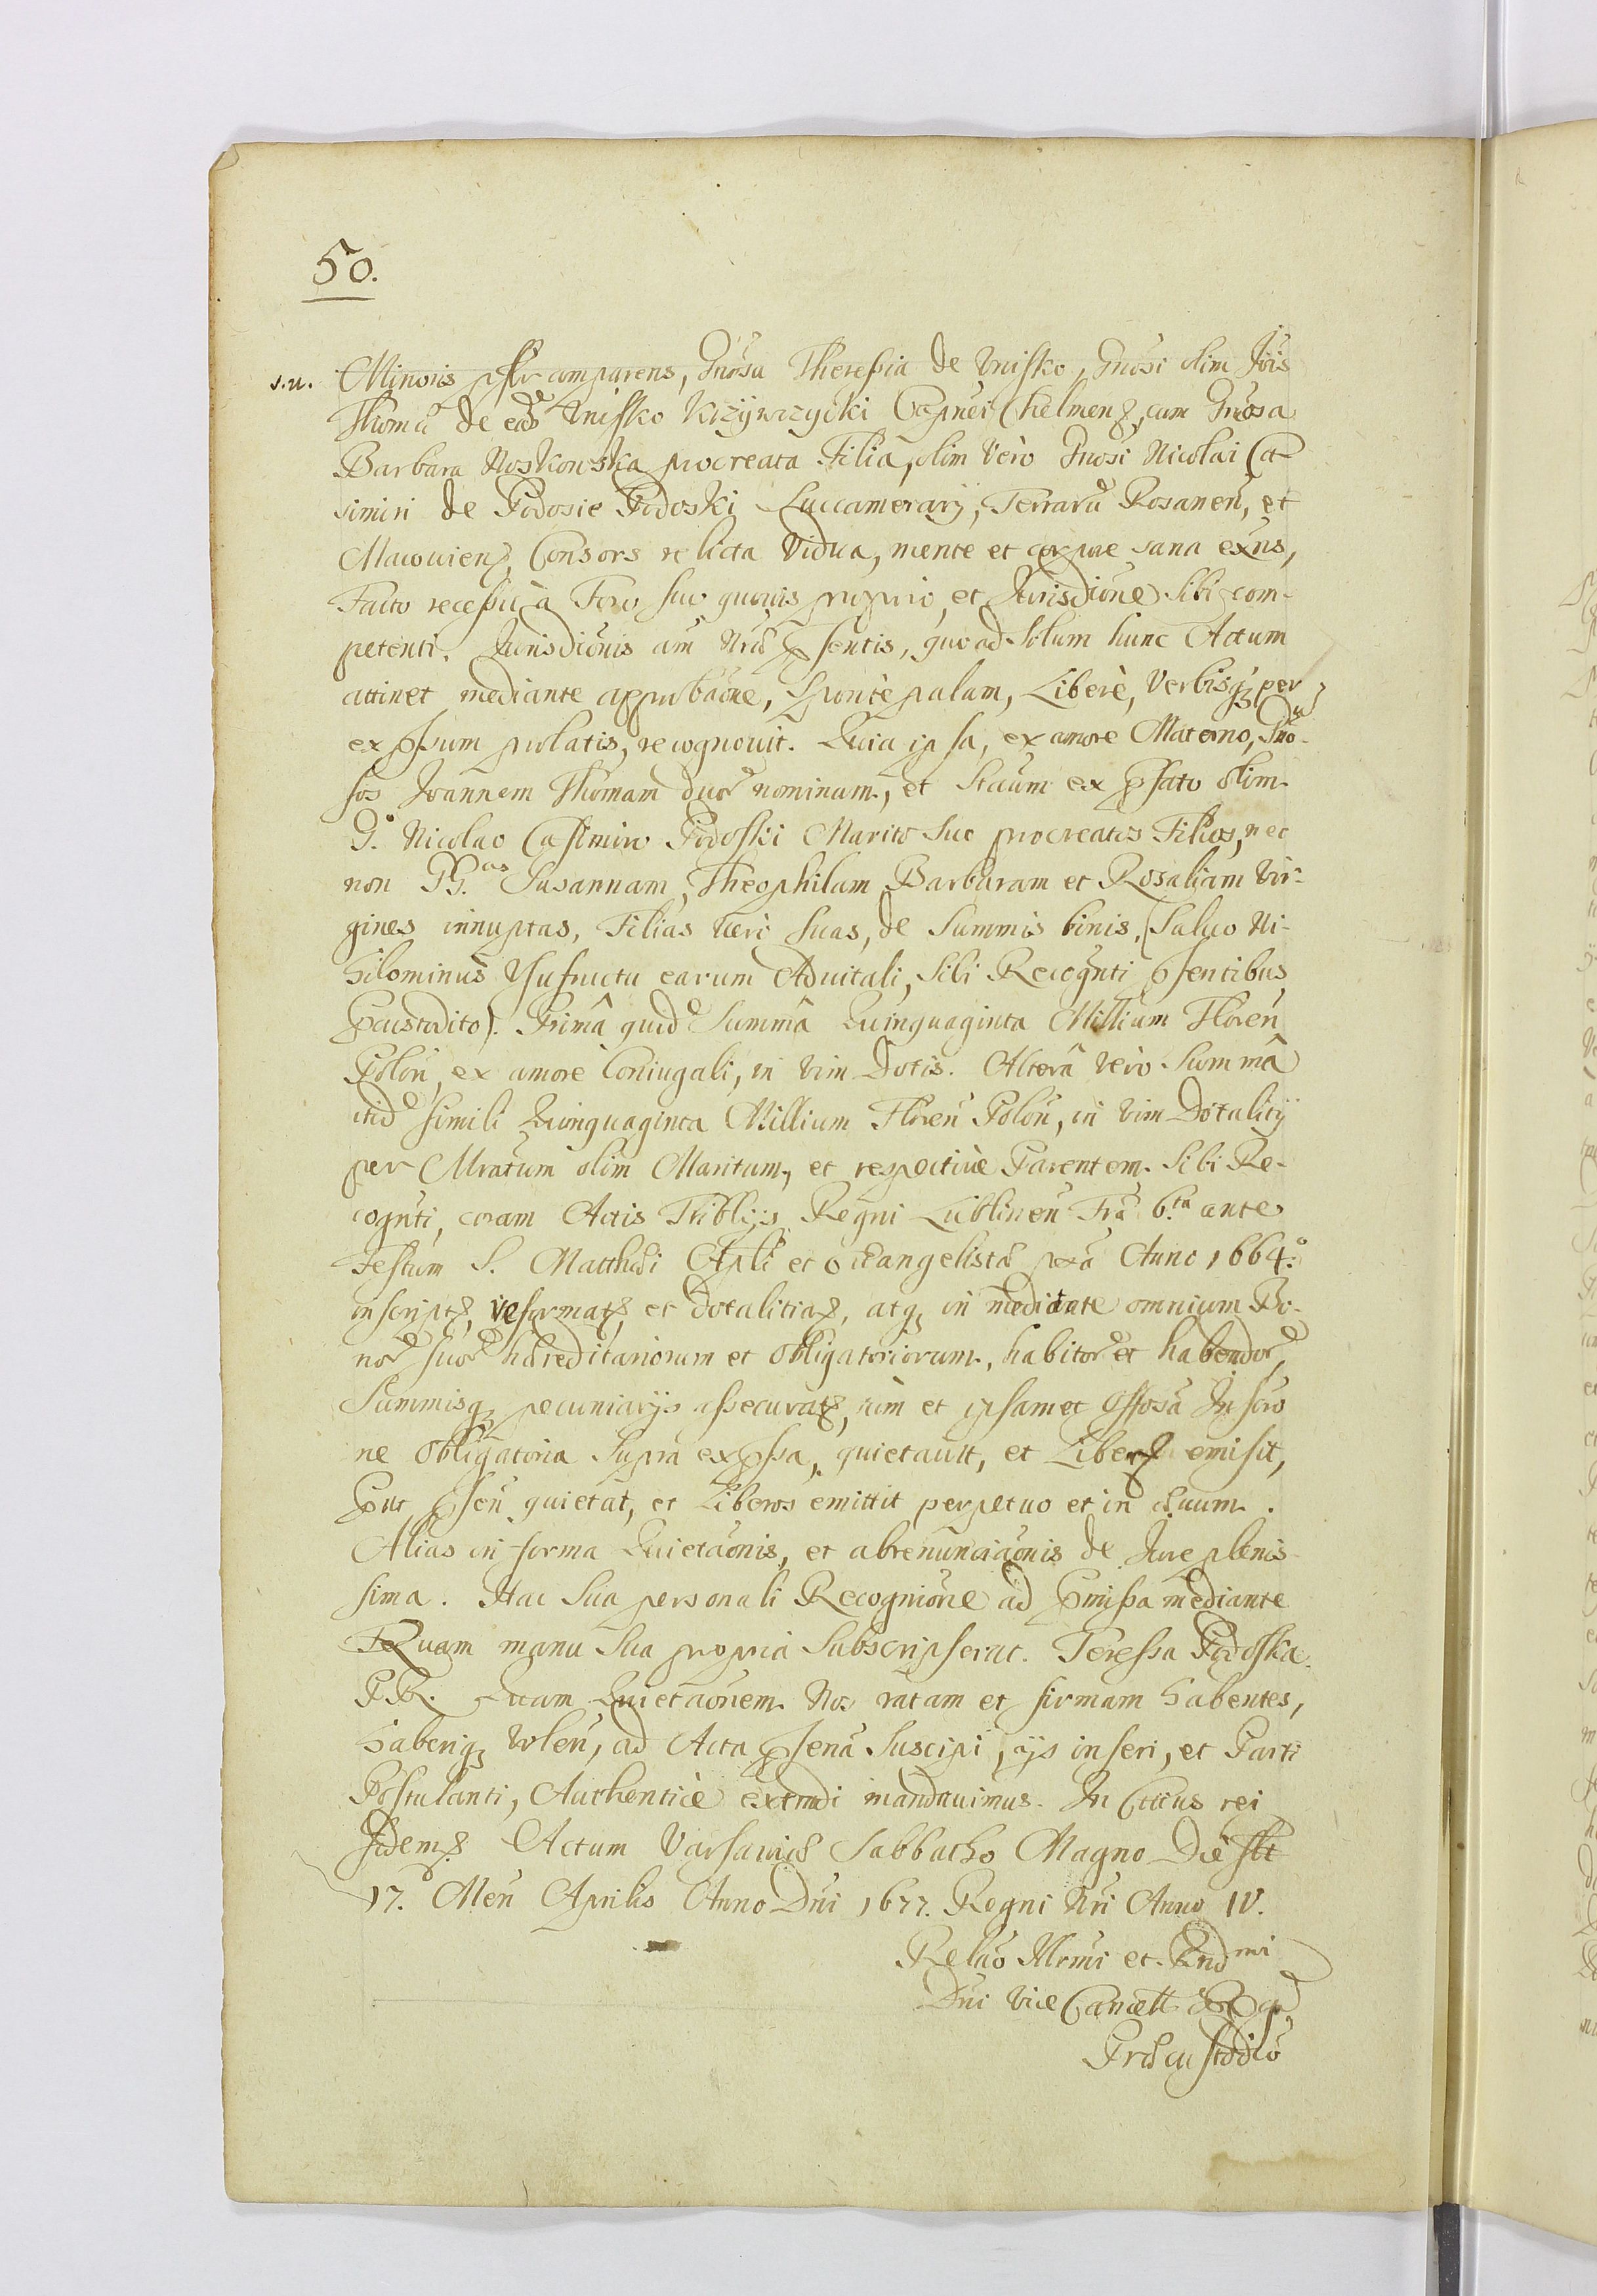 50.
s.n. Minoris psltr comparens, Gnosa Theressia de Vnisko, Gnosi olim Jois
Thomæ de eod Vnisko Krzywczycki Capnei Chelmens, cum Gnosa
Barbara Noskowska procreata Filia, olim Verò Gnosi Nicolai Ca-
simiri de Podosie Podoski Succamerarij, Terrarũ Rosanen, et
Macouiens Consors relicta Vidua, mente et corpore sana exñs,
Facto recessu à Foro suo quouis proprio et Jurisdione sibi com-
petenti. Jurisdionis aũ Nræ psentis, quoad solum hunc Actum
attinet mediante approbaone, Spontè palam, Liberè, Verbisq per
expssum prolatis, recognouit. Quia ipsa, ex amore Materno, Gno-
sos Joannem Thomam duor nominum, et Stãum ex pfato olim
G.o Nicolao Casimiro Podoski Marito suo procreatos Filios, nec
non GG.as Susannam, Theophilam Barbaram et Rosaliam Vir-
gines innuptas, Filias Verò suas, de Summis binis, (Saluo Ni-
hilominus Vsufructu earum Aduitali, sibi Recognti psentibus
pcustodito). Primâ quid Summâ Quinquaginta Millium Floren
Polon, ex amore Coniugali, in vim Dotis. Alterâ verò Summâ
itid simili Quinquaginta Millium Floren Polon, in vim Dotalitij
per Mratum olim Maritum, et respectiuè Parentem sibi Re-
cognti, coram Actis Triblijs Regni Lublinen Fra 6.ta ante
Festum S. Matthæi Apli et Euangelistæ pxa Anno 1664.o
inscripts, reformats et dotalitias, atq in medietate omnium Bo-
nor suor hæreditariorum et obligatoriorum, habitor et habendor,
Summisq pecuniarijs assecurats, tùm et ipsamet Inscrio
ne obligatoria supra expssa, quietauit, et Liberos emisit,
put psen quietat, et Liberos emittit perpetuo et in æuum.
Alias in forma Quietaonis, et abrenunciaonis de Jure plenis
sima. Hac sua personali Recognione ad pmissa mediante
Quam manu sua propria subscripserat. Teressa Podoska
PR. Quam Quietaonem Nos ratam et firmam habentes,
haberiq volen, ad Acta psena suscipi, ijs inseri, et Parti
Postulanti, Authenticè extradi mandauimus. In Cuius rei
fidem. Actum Varsauiæ Sabbatho Magno Die
17. Men Aprilis Anno Dni 1677. Regni Nri Anno IV.
Relao Illrmi et Rnd mi
Dni Vice Cancell
Præcustodito